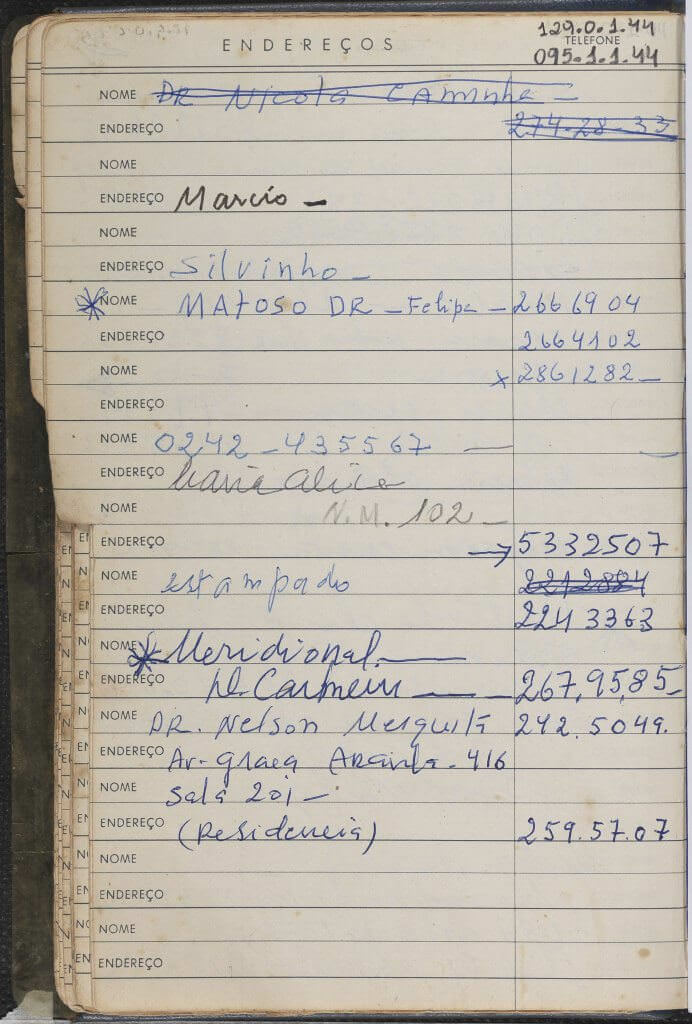 129.0.1.44
ENDEREÇOS TELEFONE
095.1.1.44
NOME DR Nicola Caminha -
ENDEREÇO 274-28-33
NOME
ENDEREÇO Marcio -
NOME
ENDEREÇO Silvinho -
NOME MATOSO DR - Felipe - 2666904
ENDEREÇO 2664102
NOME x 2861282 -
ENDEREÇO
NOME 0242 - 435567 -
ENDEREÇO Maria Alice
NOME N.M. 102 -
ENDEREÇO → 5332507
NOME estampado 2212884
ENDEREÇO 2243363
NOME Meridional. -
ENDEREÇO D. Carmem - 267.95.85 -
NOME DR. Nelson Mesquita 242.5049.
ENDEREÇO Av. Graça Aranha - 416
NOME Sala 201 -
ENDEREÇO (Residencia) 259.57.07
NOME
ENDEREÇO
NOME
ENDEREÇO